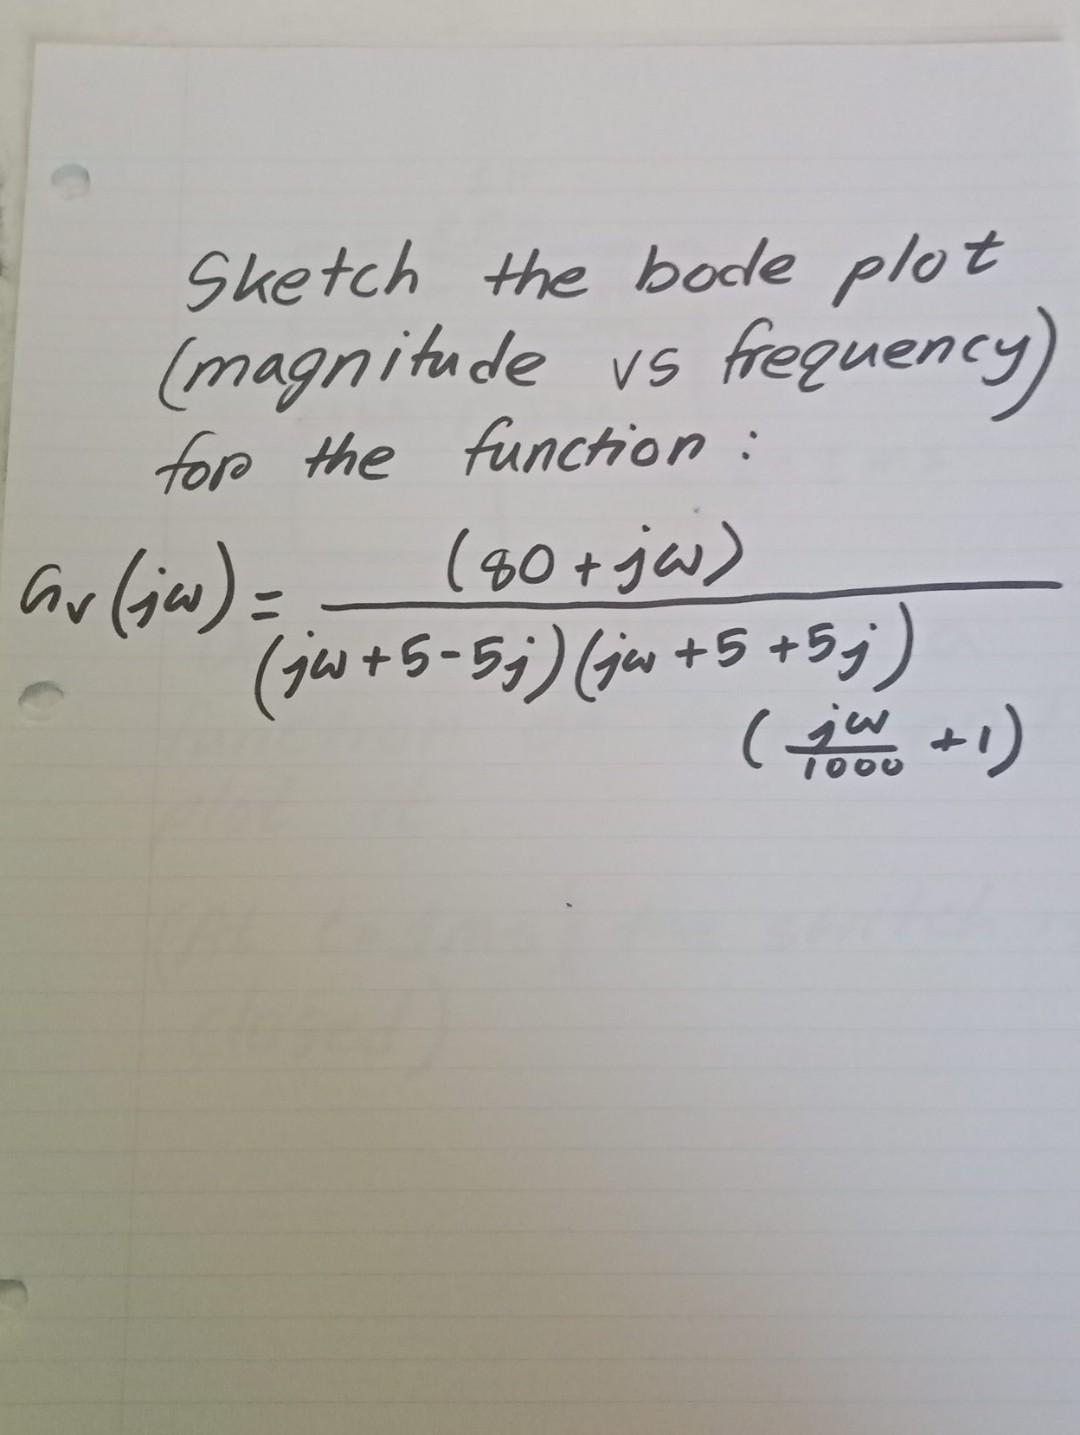 Sketch the bode plot
(magnitude vs frequency)
for the function :
Gv(jω) = (80 + jω)
(jω + 5 - 5j)(jω + 5 + 5j)
(jω/1000 + 1)